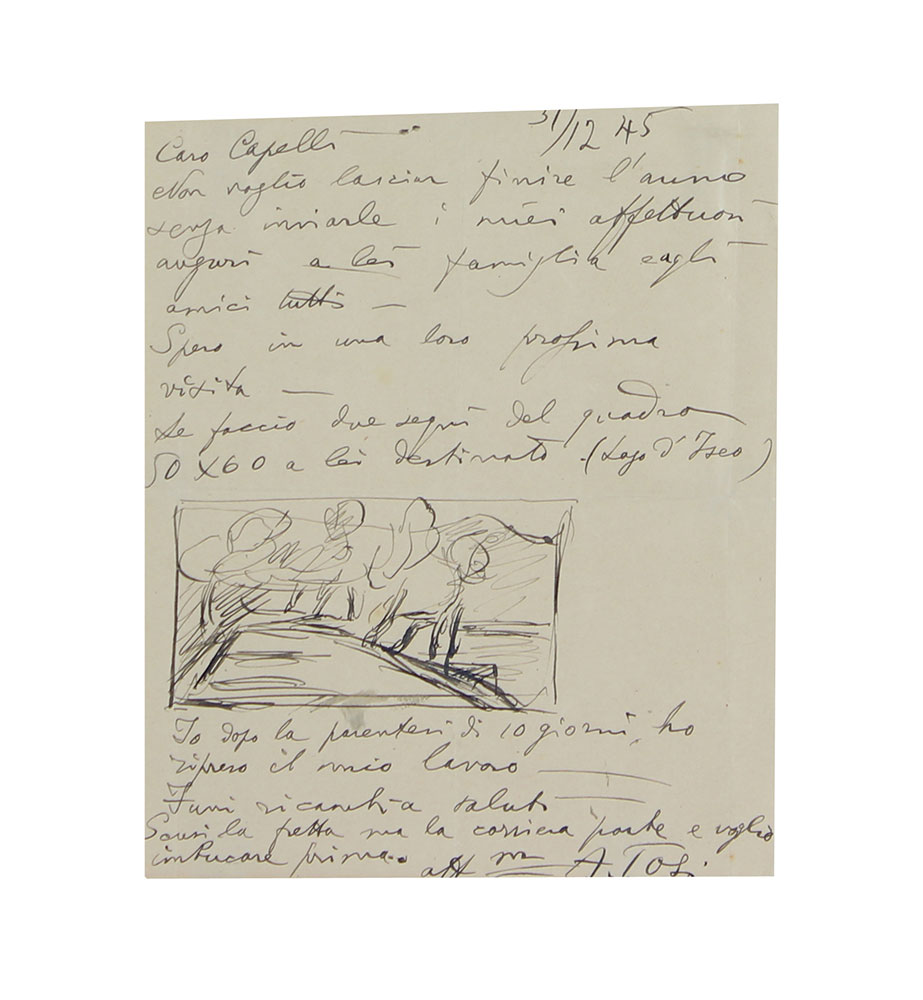 31/12 45
Caro Capelli
Non voglio lasciar finire l'anno
senza inviarle i miei affettuosi
auguri a lei famiglia e agli
amici tutti —
Spero in una loro prossima
visita —
Le faccio due segni del quadro
50 X 60 a lei destinato. (Lago d'Iseo)
Io dopo la parentesi di 10 giorni, ho
ripreso il mio lavoro —
Funi ricambia saluti —
Scusi la fretta ma la corriera parte e voglio
imbucare prima.
aff mo A. Tosi